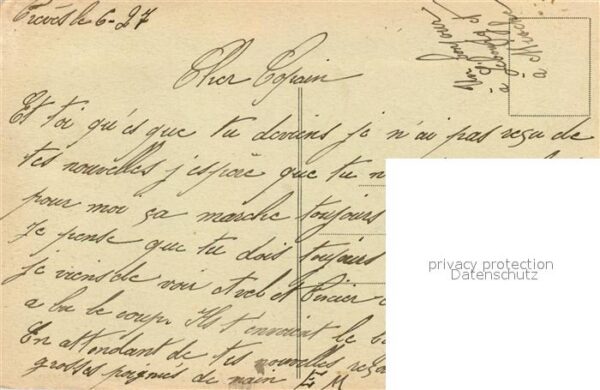 Trèves le 6-27
Cher Copain
Et toi qu'es que tu deviens je n'ai pas reçu de
tes nouvelles j'espère que tu n
pour moi ça marche toujours
Je pense que tu dois toujours
je viens de voir et
a bu le coup. Ils t'envoient le b
En attendant de tes nouvelles reço
grosses poignés de main E M
Mon bonjour
à
à
privacy protection
Datenschutz